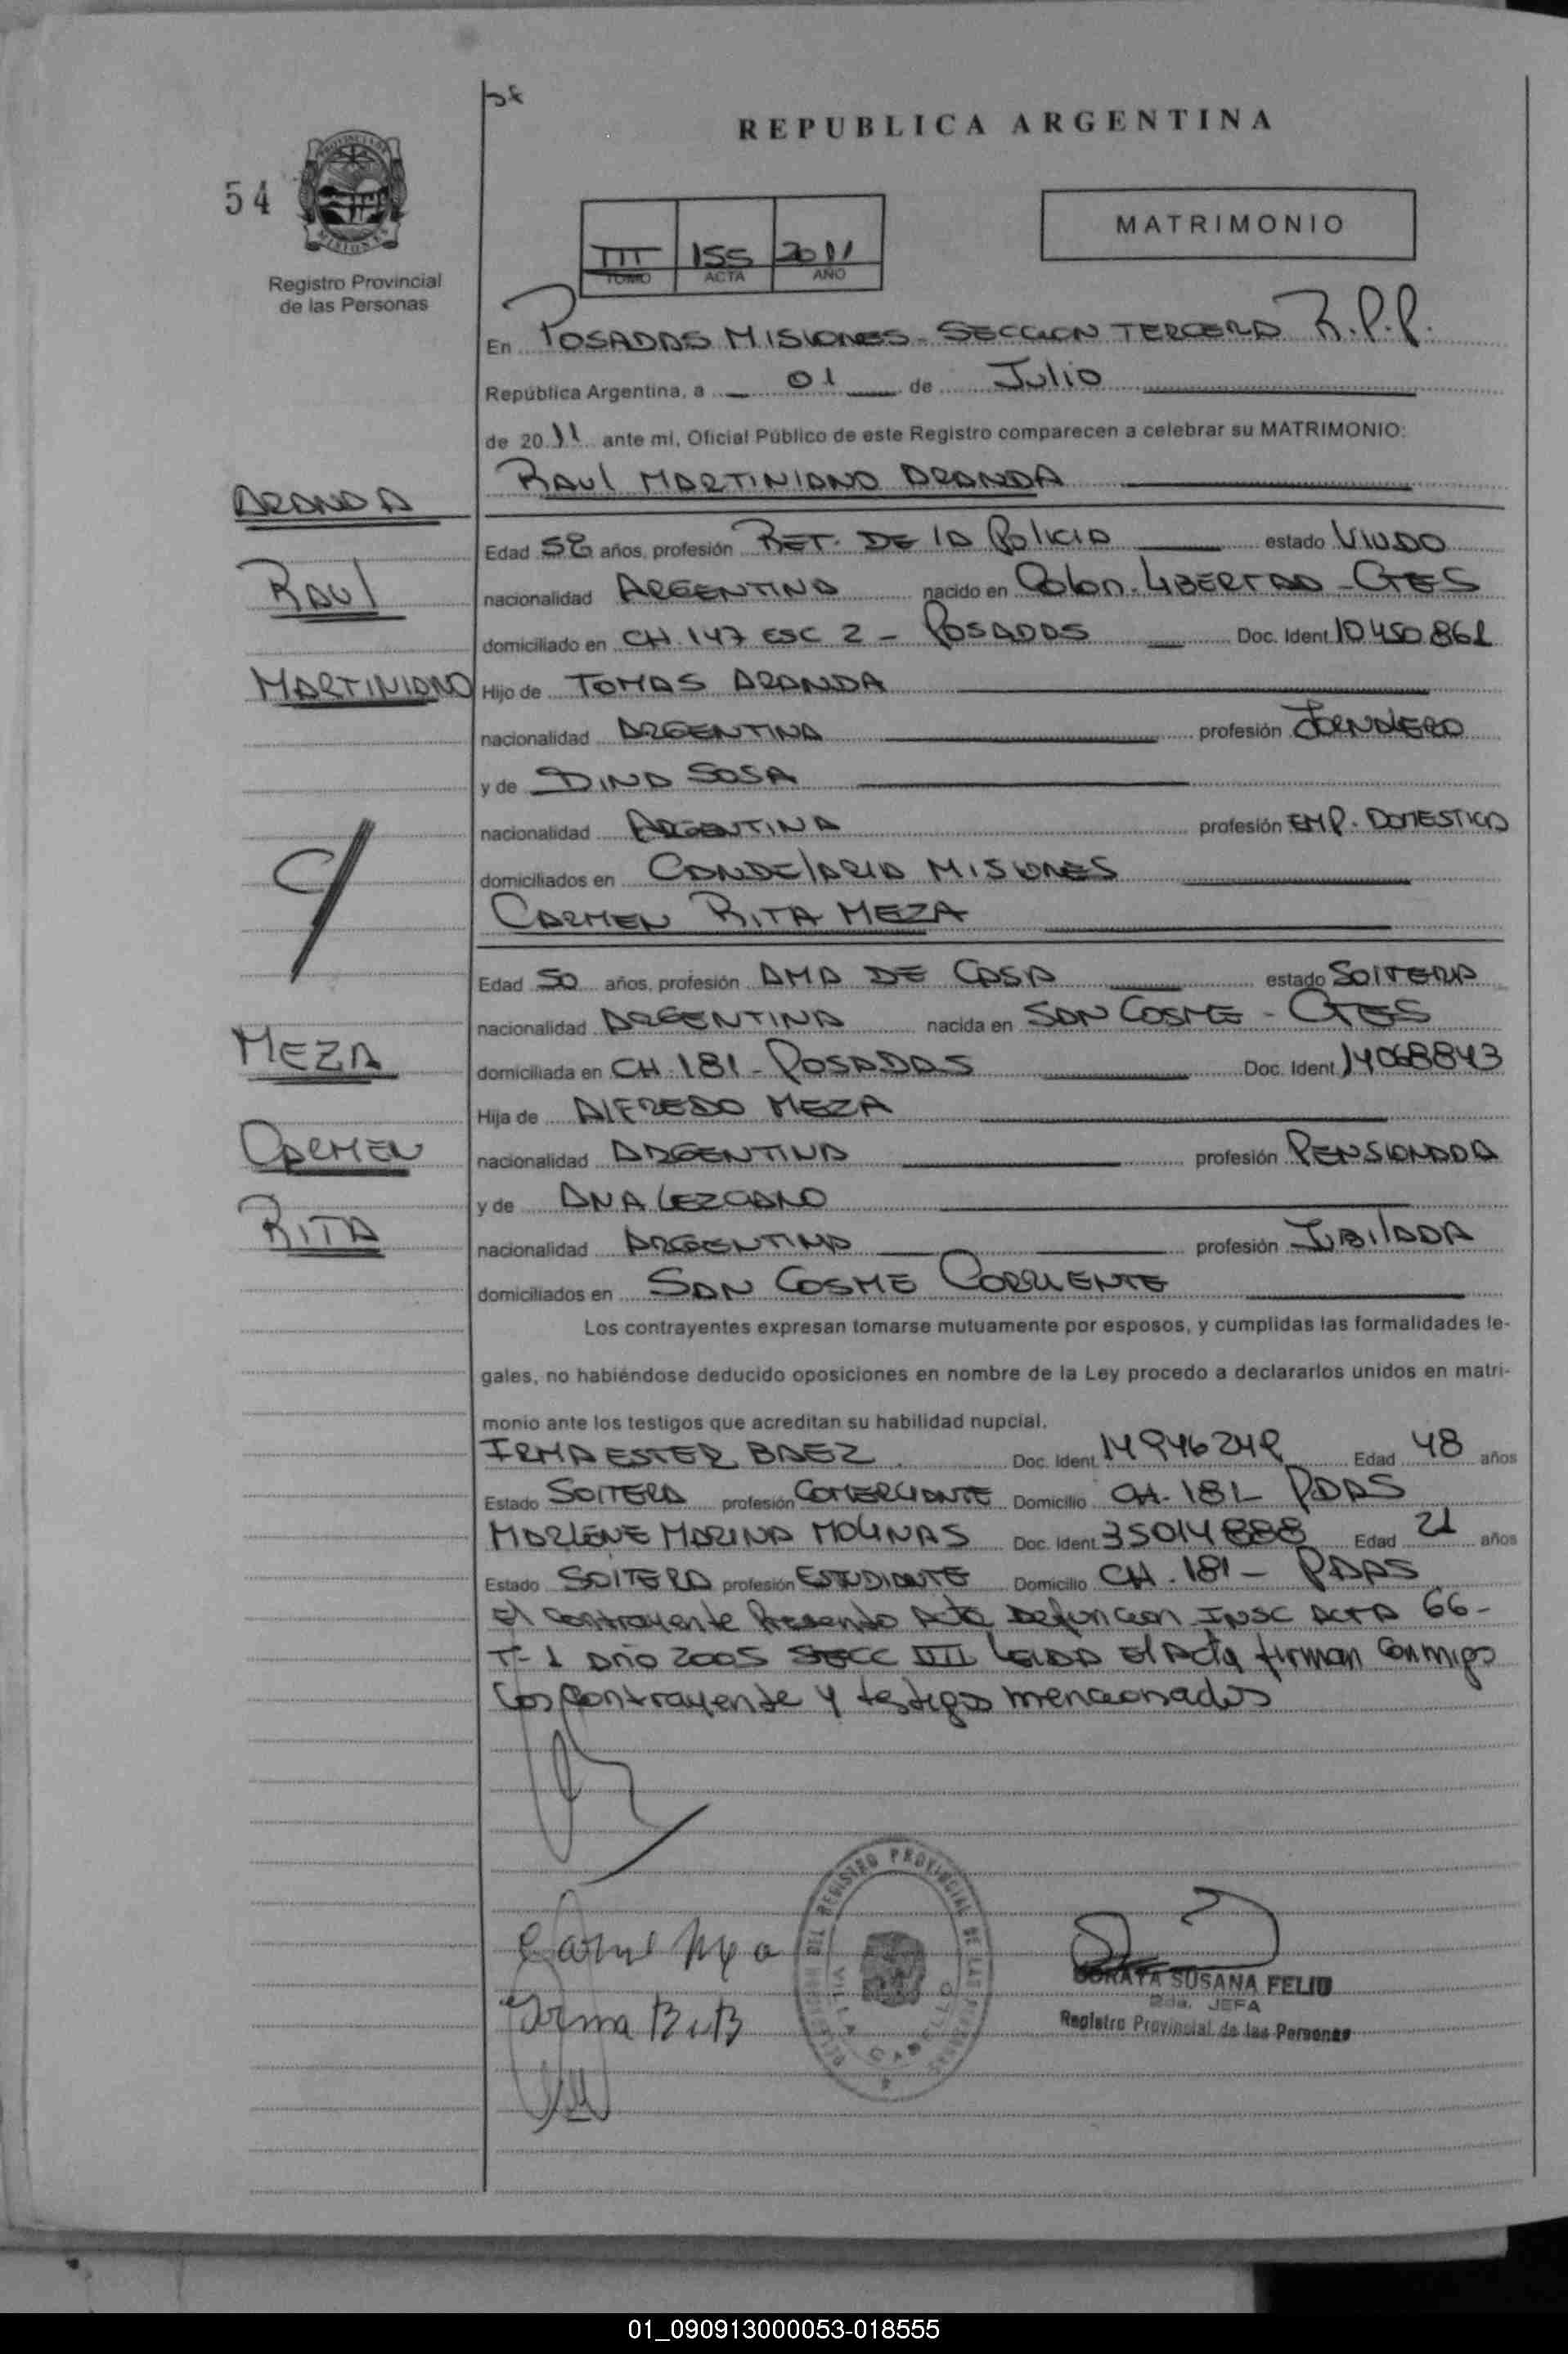 REPUBLICA ARGENTINA
54
PROVINCIA DE
MISIONES
Registro Provincial
de las Personas
III 155 2011
TOMO ACTA AÑO
MATRIMONIO
En POSADAS MISIONES - SECCION TERCERA R.P.P.
República Argentina, a 01 de Julio
de 2011 ante mí, Oficial Público de este Registro comparecen a celebrar su MATRIMONIO:
RAUL MARTINIANO ARANDA
ARANDA
Edad 58 años, profesión RET. DE LA POLICIA estado VIUDO
RAUL
nacionalidad ARGENTINA nacido en Colon. LIBERTAD - CTES
domiciliado en CH 147 ESC 2 - POSADAS Doc. Ident. 10450861
MARTINIANO
Hijo de TOMAS ARANDA
nacionalidad ARGENTINA profesión JORNALERO
y de DINA SOSA
nacionalidad ARGENTINA profesión EMP. DOMESTICA
domiciliados en CANDELARIA MISIONES
CARMEN RITA MEZA
Edad 50 años, profesión AMA DE CASA estado SOLTERA
nacionalidad ARGENTINA nacida en SAN COSME - CTES
MEZA
domiciliada en CH 181 - POSADAS Doc. Ident. 14068843
Hija de ALFREDO MEZA
CARMEN
nacionalidad ARGENTINA profesión PENSIONADA
y de ANA LEZCANO
RITA
nacionalidad ARGENTINA profesión JUBILADA
domiciliados en SAN COSME CORRIENTE
Los contrayentes expresan tomarse mutuamente por esposos, y cumplidas las formalidades le-
gales, no habiéndose deducido oposiciones en nombre de la Ley procedo a declararlos unidos en matri-
monio ante los testigos que acreditan su habilidad nupcial.
IRMA ESTER BAEZ Doc. Ident. Edad 48 años
Estado SOLTERA profesión COMERCIANTE Domicilio CH. 181 PDAS
MARLENE MARINA MOLINAS Doc. Ident. 35014888 Edad 21 años
Estado SOLTERA profesión ESTUDIANTE Domicilio CH. 181 - PDAS
El contrayente Presento Acta Defuncion INSC ACTA 66-
T-1 AÑO 2005 SECC III LEIDA El Acta firman Conmigo
Los Contrayente y testigos mencionados
Irma
REGISTRO PROVINCIAL DE LAS PERSONAS
VILLA CABELLO
SORAYA SUSANA FELIU
2da. JEFA
Registro Provincial de las Personas
01_090913000053-018555